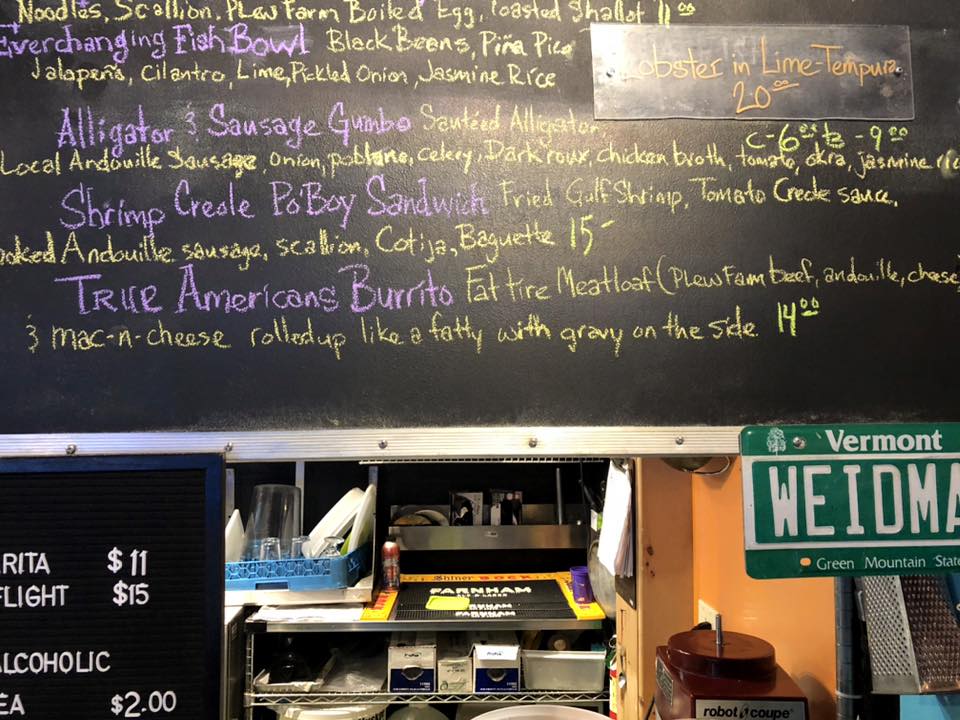 Noodles, Scallion, PLew Farm Boiled Egg, Toasted Shallot 11.00
Everchanging Fish Bowl Black Beans, Piña Pico
Jalapeño, Cilantro, Lime, Pickled Onion, Jasmine Rice
Lobster in Lime-Tempura
20.00
Alligator & Sausage Gumbo Sautéed Alligator,
C-6.00 B-9.00
Local Andouille Sausage, onion, poblano, celery, Dark roux, chicken broth, tomato, okra, jasmine ric
Shrimp Creole PoBoy Sandwich Fried Gulf Shrimp, Tomato Creole sauce,
ooked Andouille sausage, scallion, Cotija, Baguette 15-
True Americans Burrito Fat Tire Meatloaf (PLew Farm beef, andouille, cheese)
& mac-n-cheese rolled up like a fatty with gravy on the side 14.00
Vermont
WEIDMA
Green Mountain State
RITA $11
FLIGHT $15
ALCOHOLIC
EA $2.00
Shiner BOCK
FARNHAM
ALE & LAGER
FARNHAM
FARNHAM
robot coupe